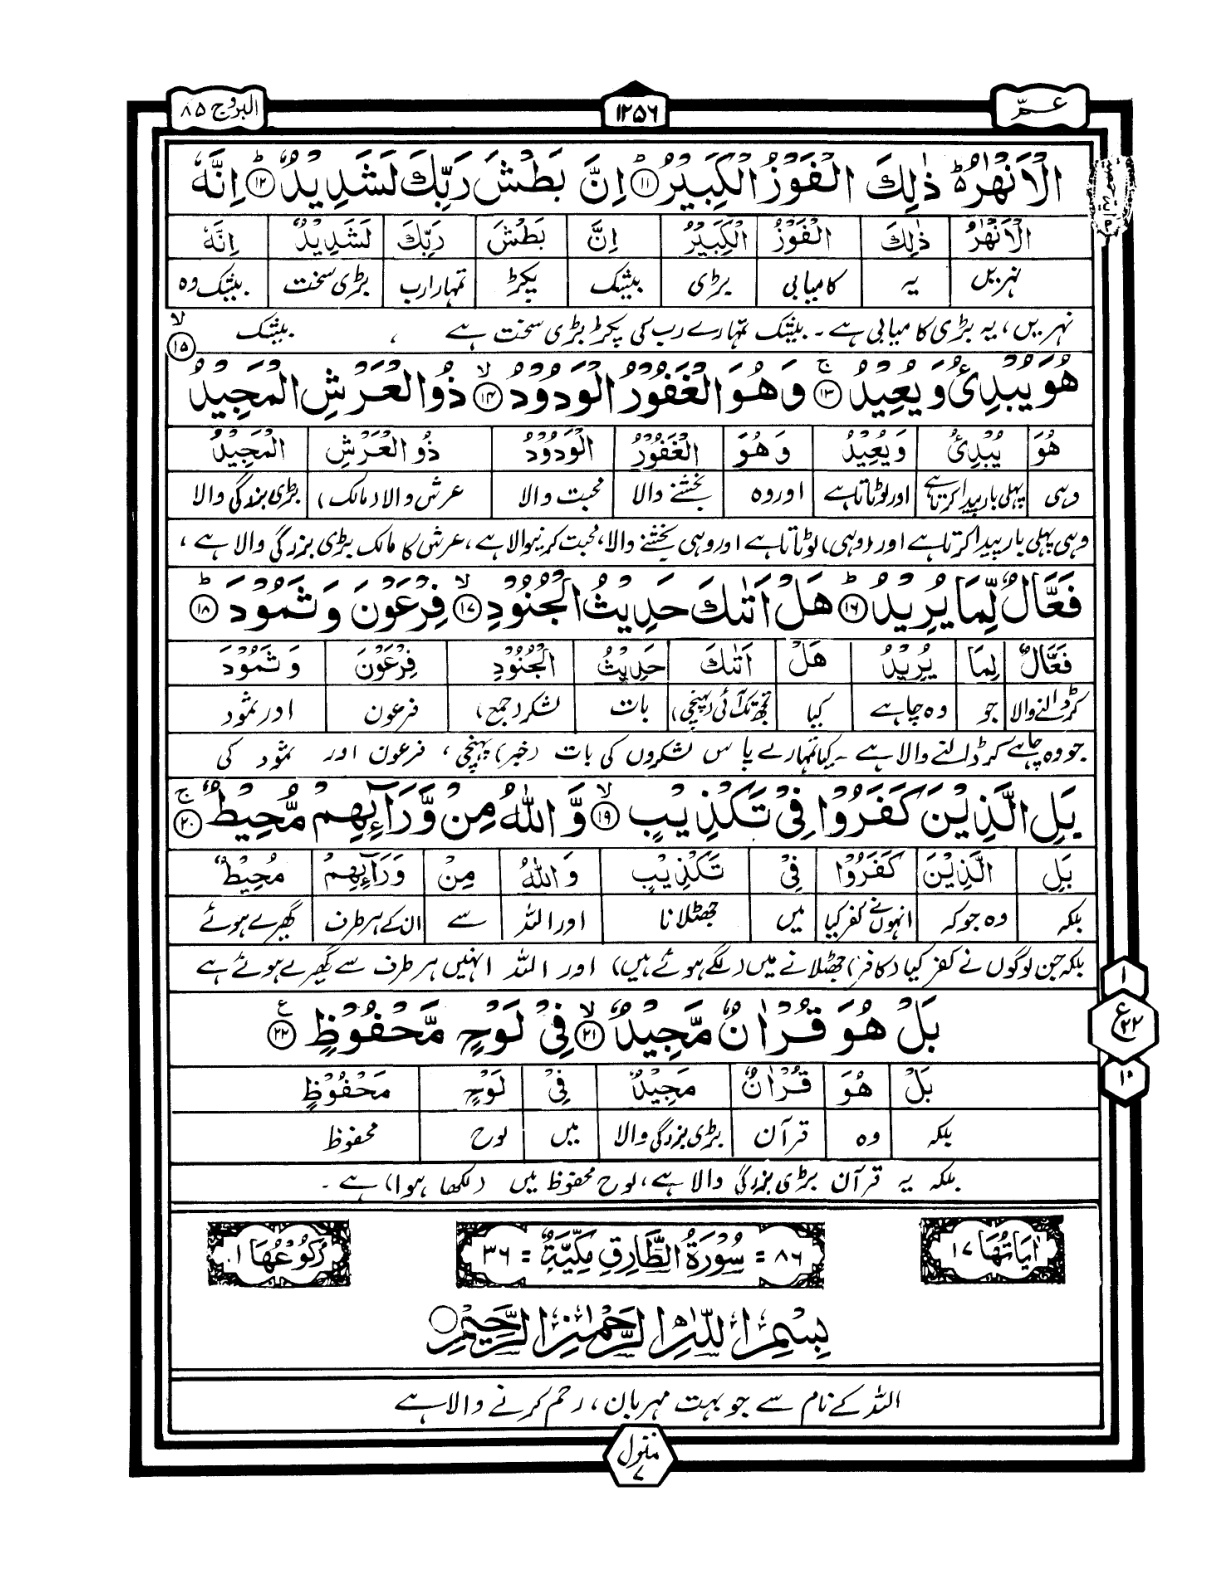 عـمّ
۱۲۵۶
البروج ۸۵
الْاَنْهٰرُ ؕ ذٰلِكَ الْفَوْزُ الْكَبِيْرُ ؕ۱۱ اِنَّ بَطْشَ رَبِّكَ لَشَدِيْدٌ ؕ۱۲ اِنَّهٗ
الْاَنْهٰرُ ذٰلِكَ الْفَوْزُ الْكَبِيْرُ اِنَّ بَطْشَ رَبِّكَ لَشَدِيْدٌ اِنَّهٗ
نہریں یہ کامیابی بڑی بیشک پکڑ تمہارا رب بڑی سخت بیشک وہ
نہریں، یہ بڑی کامیابی ہے ۔ بیشک تمہارے رب کی پکڑ بڑی سخت ہے ، بیشک
هُوَ يُبْدِئُ وَ يُعِيْدُ ۚ۱۳ وَ هُوَ الْغَفُوْرُ الْوَدُوْدُ ۙ۱۴ ذُو الْعَرْشِ الْمَجِيْدُ ۙ۱۵
هُوَ يُبْدِئُ وَ يُعِيْدُ وَ هُوَ الْغَفُوْرُ الْوَدُوْدُ ذُو الْعَرْشِ الْمَجِيْدُ
وہی پہلی بار پیدا کرتا ہے اور لوٹاتا ہے اور وہ بخشنے والا محبت والا عرش والا (مالک) بڑی بزرگی والا
وہی پہلی بار پیدا کرتا ہے اور (وہی) لوٹاتا ہے اور وہی بخشنے والا، محبت کرنیوالا ہے، عرش کا مالک بڑی بزرگی والا ہے ،
فَعَّالٌ لِّمَا يُرِيْدُ ؕ۱۶ هَلْ اَتٰىكَ حَدِيْثُ الْجُنُوْدِ ۙ۱۷ فِرْعَوْنَ وَ ثَمُوْدَ ؕ۱۸
فَعَّالٌ لِمَا يُرِيْدُ هَلْ اَتٰىكَ حَدِيْثُ الْجُنُوْدِ فِرْعَوْنَ وَ ثَمُوْدَ
کر ڈالنے والا جو وہ چاہے کیا تجھ تک آئی (پہنچی) بات لشکر (جمع) فرعون اور ثمود
جو وہ چاہے کر ڈالنے والا ہے ۔ کیا تمہارے پاس لشکروں کی بات (خبر) پہنچی ، فرعون اور ثمود کی
بَلِ الَّذِيْنَ كَفَرُوْا فِيْ تَكْذِيْبٍ ۙ۱۹ وَّ اللّٰهُ مِنْ وَّرَآئِهِمْ مُّحِيْطٌ ۚ۲۰
بَلِ الَّذِيْنَ كَفَرُوْا فِيْ تَكْذِيْبٍ وَ اللّٰهُ مِنْ وَرَآئِهِمْ مُحِيْطٌ
بلکہ وہ جو کہ انہوں نے کفر کیا میں جھٹلانا اور اللہ سے ان کے ہر طرف گھیرے ہوئے
بلکہ جن لوگوں نے کفر کیا (کافر) جھٹلانے میں (لگے ہوئے ہیں) اور اللہ انہیں ہر طرف سے گھیرے ہوئے ہے
۱
ع ۲۲
۱۰
بَلْ هُوَ قُرْاٰنٌ مَّجِيْدٌ ۙ۲۱ فِيْ لَوْحٍ مَّحْفُوْظٍ ۧ۲۲
بَلْ هُوَ قُرْاٰنٌ مَجِيْدٌ فِيْ لَوْحٍ مَحْفُوْظٍ
بلکہ وہ قرآن بڑی بزرگی والا میں لوح محفوظ
بلکہ یہ قرآن بڑی بزرگی والا ہے، لوح محفوظ میں (لکھا ہوا) ہے ۔
اٰيَاتُهَا ۱۷
۸۶ = سُوْرَةُ الطَّارِقِ مَكِّيَّةٌ = ۳۶
رُكُوْعُهَا ۱
بِسْمِ اللّٰهِ الرَّحْمٰنِ الرَّحِيْمِ
اللہ کے نام سے جو بہت مہربان ، رحم کرنے والا ہے
منزل ۷